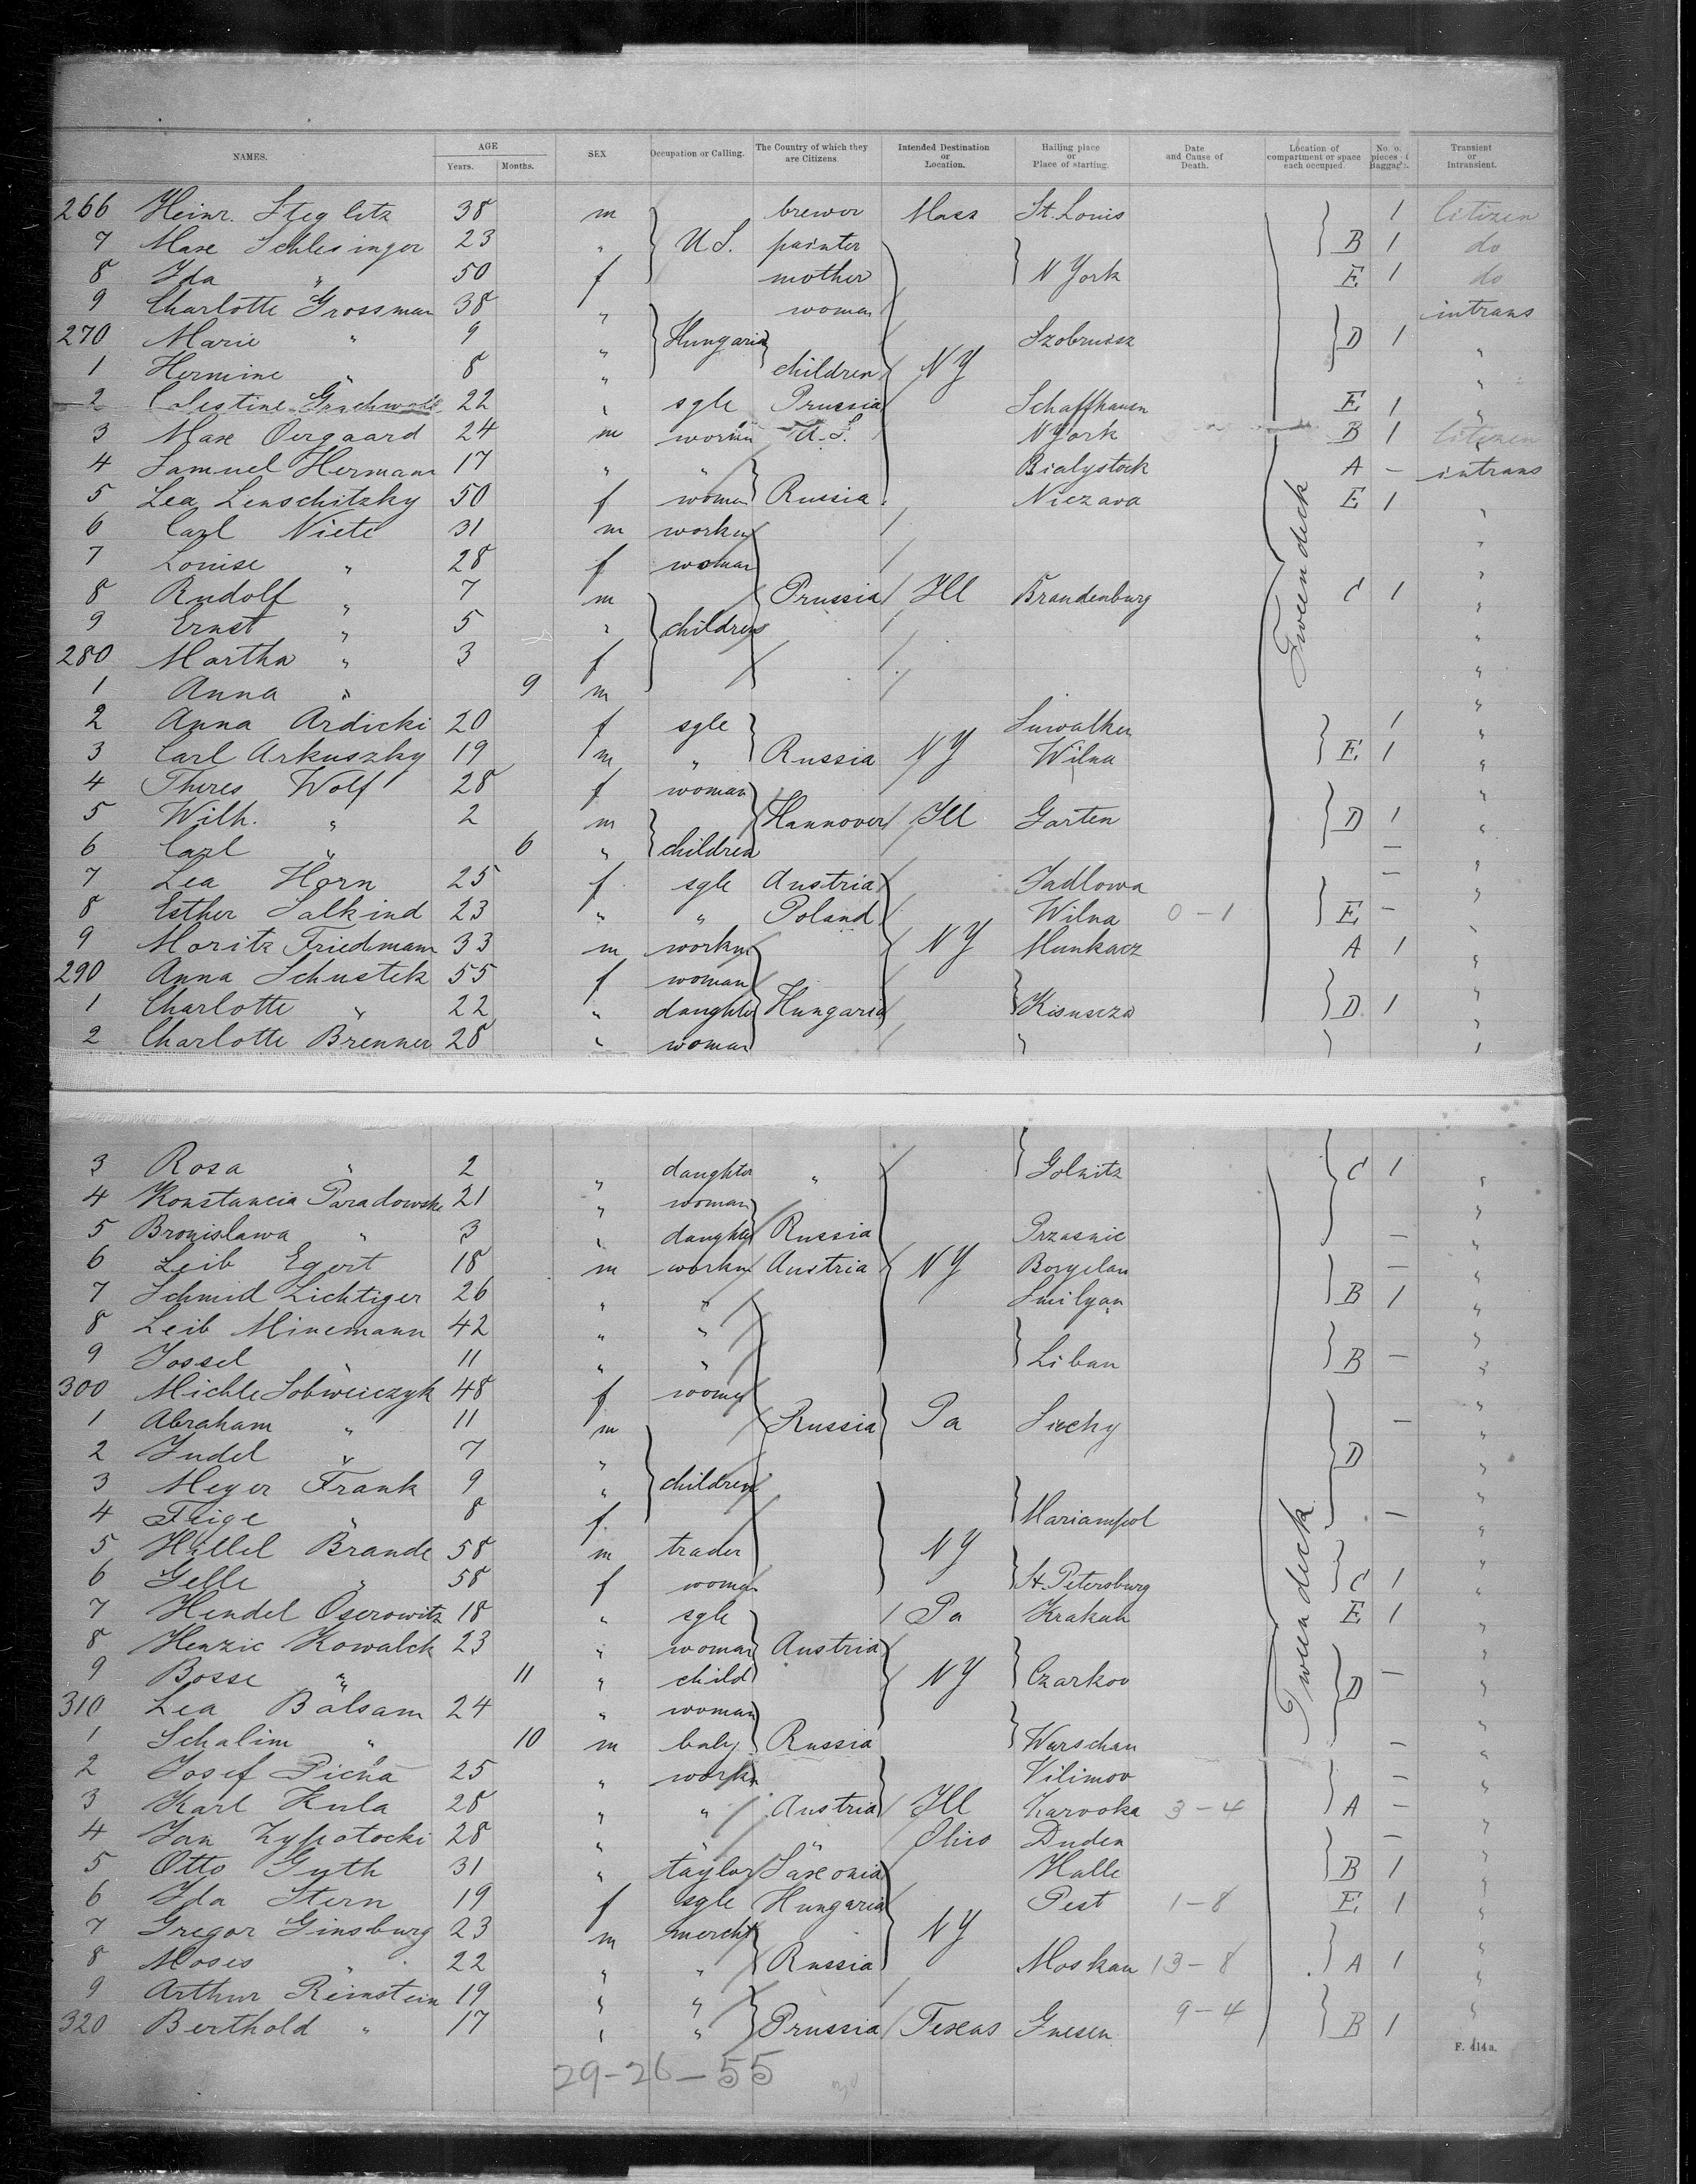 NAMES. AGE Years. Months. SEX Occupation or Calling. The Country of which they are Citizens. Intended Destination or Location. Hailing place or Place of starting. Date and Cause of Death. Location of compartment or space each occupied. No. of pieces of Baggage. Transient or Intransient.
266 Heinr. Steglitz 38 m brewer Mass St. Louis 1 Citizen
7 Max Schlesinger 23 " U.S. painter B 1 do
8 Ida " 50 f mother N York E 1 do
9 Charlotte Grossman 38 " woman intrans
270 Marie " 9 " Hungaria Szobrusz D 1 "
1 Hermine " 8 " children NY "
2 Celestine 22 " sgle Prussia Schaffhausn E 1 "
3 Max Overgaard 24 m workm U.S. N York B 1 Citizen
4 Samuel Hermann 17 " " Bialystock A — intrans
5 Lea Lenschitzky 50 f woman Russia Niezava E 1 "
6 Carl Niete 31 m workm "
7 Louise " 28 f woman "
8 Rudolf " 7 m Prussia Ill Brandenburg C 1 "
9 Ernst " 5 " children "
280 Martha " 3 f "
1 Anna " 9 m "
2 Anna Ardicki 20 f sgle Suwalken 1 "
3 Carl Arkuszky 19 m " Russia NY Wilna E 1 "
4 Theres Wolf 28 f woman "
5 Wilh. " 2 m Hannover Ill Garten D 1 "
6 Carl " 6 " children — "
7 Lea Horn 25 f sgle Austria Jadlowa — "
8 Esther Salkind 23 " " Poland Wilna 0-1 E — "
9 Moritz Friedmann 33 m workm NY Munkacz A 1 "
290 Anna Schustek 55 f woman "
1 Charlotte " 22 " daughter Hungaria Kisuszza D 1 "
2 Charlotte Brenner 28 " woman "
Tween deck
3 Rosa " 2 " daughter " Golnitz C 1 "
4 Konstancia Paradowska 21 " woman "
5 Bronislawa " 3 " daughter Russia Przasnic — "
6 Leib Egert 18 m workm Austria NY Boryslau — "
7 Schmid Lichtiger 26 " " Smilyan B 1 "
8 Leib Minemann 42 " " "
9 Jossel " 11 " " Libau B — "
300 Michle Sobweiczyk 48 f woman "
1 Abraham " 11 m Russia Pa Siechy — "
2 Judel " 7 " D "
3 Meyer Frank 9 " children "
4 Feige " 8 f Mariampol — "
5 Hillel Brande 58 m trader NY "
6 Gelle " 58 f woman St. Petersburg C 1 "
7 Hendel Oserowitz 18 " sgle Pa Krakau E 1 "
8 Henzie Kowalek 23 " woman Austria "
9 Bosse " 11 " child NY Czarkov D — "
310 Lea Balsam 24 " woman "
1 Schalim " 10 m baby Russia Warschau — "
2 Josef Picha 25 " workm Vilimov — "
3 Karl Kula 28 " " Austria Ill 3-4 A — "
4 Jan Zypotocki 28 " " " Ohio Duden — "
5 Otto Guth 31 " taylor Saxonia Halle B 1 "
6 Ida Stern 19 f sgle Hungaria Pest 1-8 E 1 "
7 Gregor Ginsburg 23 m mercht NY "
8 Moses " 22 " " Russia Moskau 13-8 A 1 "
9 Arthur Reinstein 19 " " "
320 Berthold " 17 " " Prussia Texas Gnesen 9-4 B 1
Tween deck
F. 414a.
29-26-55